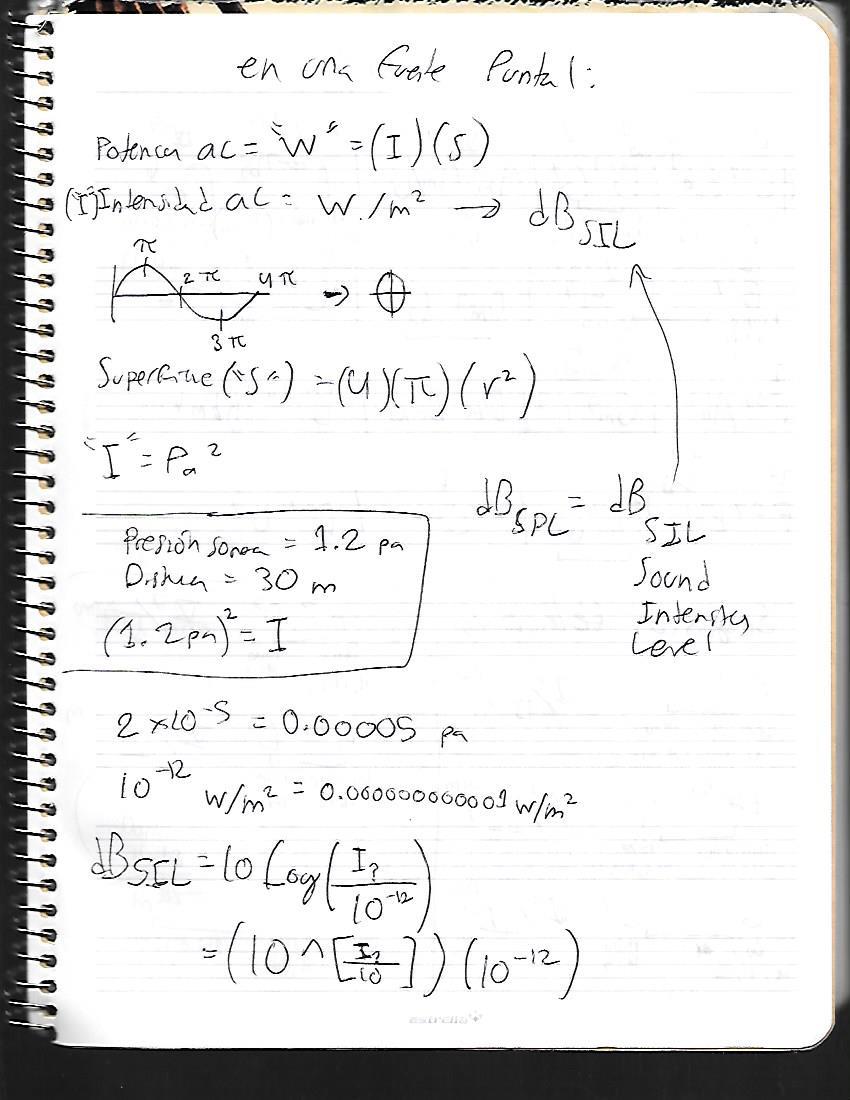 en una fuente Puntal:
Potencia ac = "W" = (I)(S)
("I") Intensidad ac = W./m² → dB SIL
π
2π
4π
→
3π
Superficie ("S") = (4)(π)(r²)
"I" = Pa²
dB SPL = dB SIL
Sound
Intensity
Level
Presión sonora = 1.2 pa
Distancia = 30 m
(1.2 pa)² = I
2 x10⁻⁵ = 0.00005 pa
10⁻¹² W/m² = 0.000000000001 W/m²
dB SIL = 10 Log(I?/10⁻¹²)
= (10 ^ [I?/10]) (10⁻¹²)
estrella